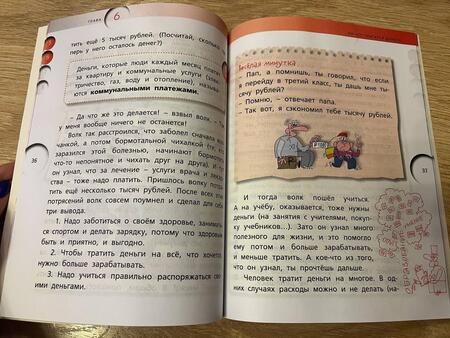 ГЛАВА 6
тить ещё 5 тысяч рублей. (Посчитай, сколько
перь у него осталось денег?)
Деньги, которые люди каждый месяц платят
за квартиру и коммунальные услуги
тричество, газ, воду и отопление), называ-
ются коммунальными платежами.
– Да что же это делается! – взвыл волк. –
у меня вообще ничего не останется!
Волк так расстроился, что заболел сначала
чанкой, а потом бормотальной чихалкой
заразился этой болезнью, начинают бормотать
что-то непонятное и чихать друг на друга). И
он узнал, что за лечение – услуги врача и лекар-
ства – тоже надо платить. Пришлось волку потра-
тить ещё несколько тысяч рублей. После этих
потрясений волк совсем поумнел и сделал для себя
три вывода.
1. Надо заботиться о своём здоровье, занимать-
ся спортом и делать зарядку, потому что здоровым
быть и приятно, и выгодно.
2. Чтобы тратить деньги на всё, что хочется,
нужно больше зарабатывать.
3. Надо учиться правильно распоряжаться свои-
ми деньгами.
36
Весёлая минутка
– Пап, а помнишь, ты говорил, что если
я перейду в третий класс, ты дашь мне ты-
сячу рублей?
– Помню, – отвечает папа.
– Так вот, я сэкономил тебе тысячу рублей.
37
И тогда волк пошёл учиться.
А на учёбу, оказывается, тоже нужны
деньги (на занятия с учителями, покуп-
ку учебников...). Зато он узнал много
полезного для жизни, и это помогло
ему потом и больше зарабатывать,
и меньше тратить. А кое-что из того,
что он узнал, ты прочтёшь дальше.
Человек тратит деньги на многое. В од-
них случаях расходы можно и не делать (на-